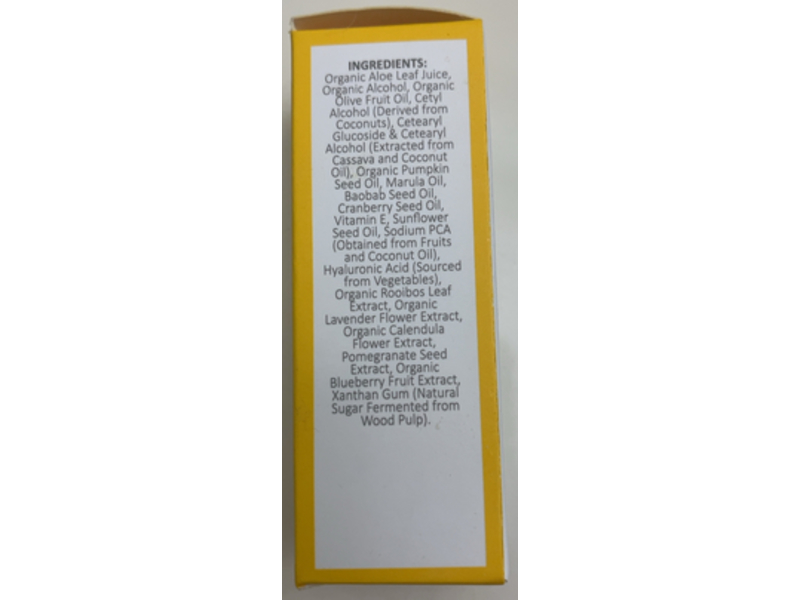 INGREDIENTS:
Organic Aloe Leaf Juice,
Organic Alcohol, Organic
Olive Fruit Oil, Cetyl
Alcohol (Derived from
Coconuts), Cetearyl
Glucoside & Cetearyl
Alcohol (Extracted from
Cassava and Coconut
Oil), Organic Pumpkin
Seed Oil, Marula Oil,
Baobab Seed Oil,
Cranberry Seed Oil,
Vitamin E, Sunflower
Seed Oil, Sodium PCA
(Obtained from Fruits
and Coconut Oil),
Hyaluronic Acid (Sourced
from Vegetables),
Organic Rooibos Leaf
Extract, Organic
Lavender Flower Extract,
Organic Calendula
Flower Extract,
Pomegranate Seed
Extract, Organic
Blueberry Fruit Extract,
Xanthan Gum (Natural
Sugar Fermented from
Wood Pulp).